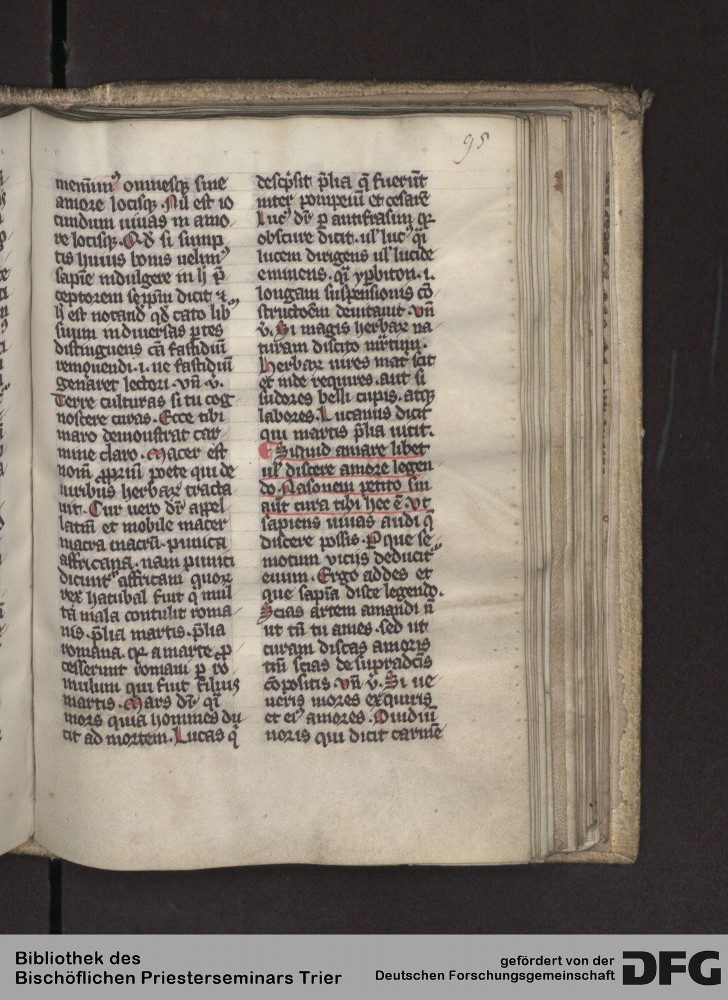 95
meminim⁹ omnesqꝫ sine
amore locisqꝫ. Nil est io
cundum uiuas in amo
re locisqꝫ. Qd̄ si sump
tis huius bonis uelim⁹
sapīe indulgere in h̄ p̄
ceptorem sequi dicit ⁊
h̄ est notand̄ qd̄ cato lib
suum in diuersas ꝑtes
distinguens cā fastidiū
remouendi .i. ne fastidiū
genaret lectori. vn̄ v̄.
Terre culturas si tu cog
noscere curas. Ecce tibi
maro demonstrat car
mine claro. Macer est
nom̄ ꝓpriū poete qui de
uiribus herbaꝝ tracta
uit. Cur uero dr̄ appel
latiū et mobile macer
macra macrū. punica
affricana. nam punici
dicunt affricam quoꝝ
rex hatubal fuit q̄ mul
ta mala contulit roma
nis. p̄lia martis. p̄lia
romana. qꝛ a marte ꝓ
cesserunt romani ꝑ ro
mulum qui fuit filius
martis. Mars dr̄ qͥ
mors quia homines du
cit ad mortem. Lucas q̄
descͥpsit p̄lia q̄ fuerūt
inter pompeiū et cesarē
Luc⁹ dr̄ ꝑ antifrasim qꝛ
obscure dicit. ul' luc⁹ qͥ
lucem dirigens ul' lucide
eminens. qͥ ypbiton .i.
longam suspensionis cō
structoēm deuitauit. vn̄
v̄. Si magis herbaꝝ na
turam discito
Herbaꝝ uires mac̄ scit
et inde requires. aut si
sudores belli cupis. atqꝫ
labores. Lucanus dicit
qui martis p̄lia uicit.
Siquid amare libet
ul' discere amore legen
do. Nasonem petito sin
aut cura tibi hec ē. Vt
sapiens uiuas audi q̄
discere possis. ꝑ que se
motum viciis deducit
euum. Ergo addes et
que sapīa disce legendo.
Scias artem amandi n̄
ut tn̄ tu ames. sed ut
curam discas amoris
tm̄ scias de supradcīs
cōpositis. vn̄ v̄. Si ue
neris mores exquiris
et ei⁹ amores. Ouidiū
noris qui dicit carmīe
Bibliothek des
Bischöflichen Priesterseminars Trier
gefördert von der
Deutschen Forschungsgemeinschaft
DFG